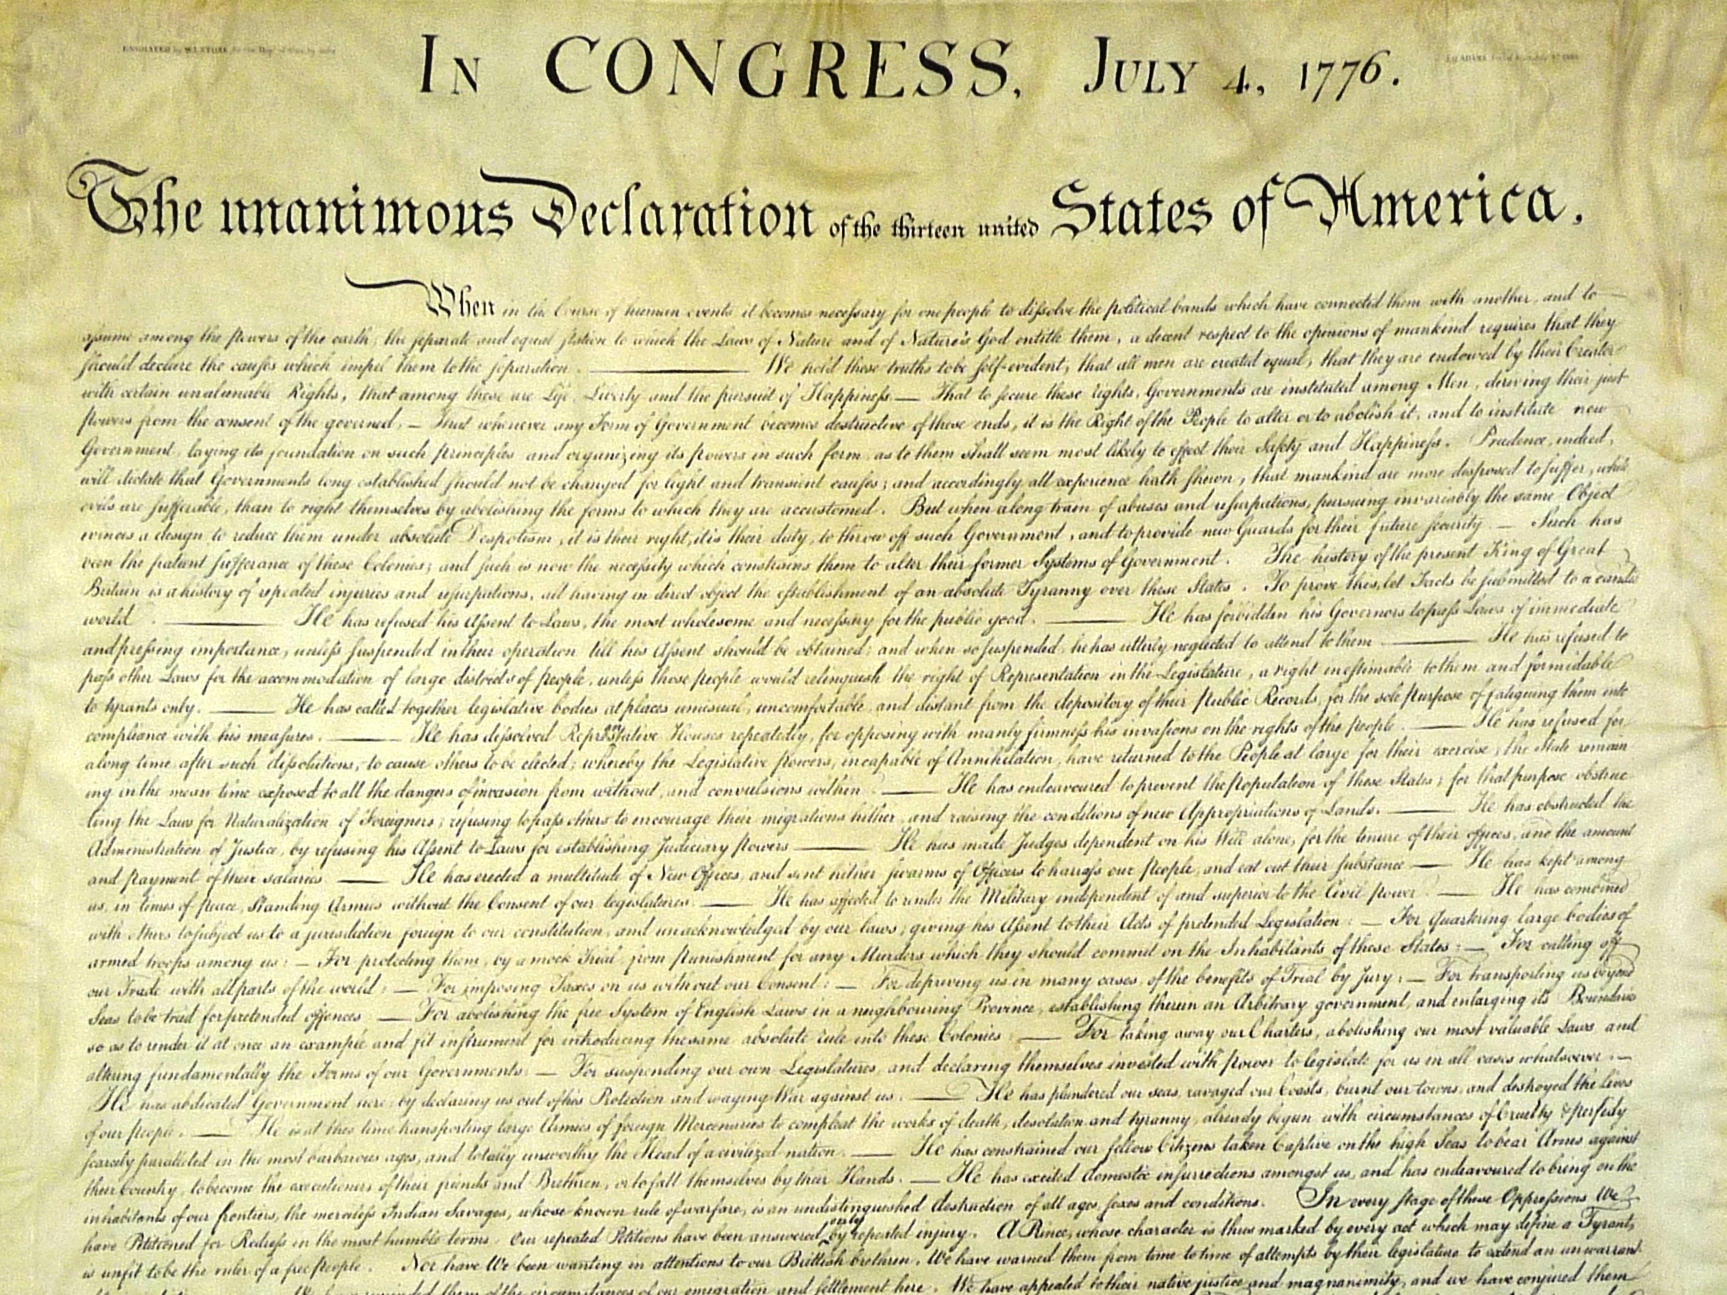 ENGRAVED by W.I. STONE for the Dept. of State by order
of J. Q. ADAMS Sect. of State July 4th 1823.
In CONGRESS, July 4, 1776.
The unanimous Declaration of the thirteen united States of America.
When in the Course of human events it becomes necessary for one people to dissolve the political bands which have connected them with another, and to
assume among the powers of the earth, the separate and equal station to which the Laws of Nature and of Nature's God entitle them, a decent respect to the opinions of mankind requires that they
should declare the causes which impel them to the separation. — We hold these truths to be self-evident, that all men are created equal, that they are endowed by their Creator
with certain unalienable Rights, that among these are Life, Liberty and the pursuit of Happiness. — That to secure these rights, Governments are instituted among Men, deriving their just
powers from the consent of the governed, — That whenever any Form of Government becomes destructive of these ends, it is the Right of the People to alter or to abolish it, and to institute new
Government, laying its foundation on such principles and organizing its powers in such form, as to them shall seem most likely to effect their Safety and Happiness. Prudence, indeed,
will dictate that Governments long established should not be changed for light and transient causes; and accordingly all experience hath shewn, that mankind are more disposed to suffer, while
evils are sufferable, than to right themselves by abolishing the forms to which they are accustomed. But when a long train of abuses and usurpations, pursuing invariably the same Object
evinces a design to reduce them under absolute Despotism, it is their right, it is their duty, to throw off such Government, and to provide new Guards for their future security. — Such has
been the patient sufferance of these Colonies; and such is now the necessity which constrains them to alter their former Systems of Government. The history of the present King of Great
Britain is a history of repeated injuries and usurpations, all having in direct object the establishment of an absolute Tyranny over these States. To prove this, let Facts be submitted to a candid
world. — He has refused his Assent to Laws, the most wholesome and necessary for the public good. — He has forbidden his Governors to pass Laws of immediate
and pressing importance, unless suspended in their operation till his Assent should be obtained; and when so suspended, he has utterly neglected to attend to them. — He has refused to
pass other Laws for the accommodation of large districts of people, unless those people would relinquish the right of Representation in the Legislature, a right inestimable to them and formidable
to tyrants only. — He has called together legislative bodies at places unusual, uncomfortable, and distant from the depository of their Public Records, for the sole purpose of fatiguing them into
compliance with his measures. — He has dissolved Representative Houses repeatedly, for opposing with manly firmness his invasions on the rights of the people. — He has refused for
a long time, after such dissolutions, to cause others to be elected; whereby the Legislative powers, incapable of Annihilation, have returned to the People at large for their exercise; the State remain
ing in the mean time exposed to all the dangers of invasion from without, and convulsions within. — He has endeavoured to prevent the population of these States; for that purpose obstruc
ting the Laws for Naturalization of Foreigners; refusing to pass others to encourage their migrations hither, and raising the conditions of new Appropriations of Lands. — He has obstructed the
Administration of Justice, by refusing his Assent to Laws for establishing Judiciary powers — He has made Judges dependent on his Will alone, for the tenure of their offices, and the amount
and payment of their salaries. — He has erected a multitude of New Offices, and sent hither swarms of Officers to harrass our people, and eat out their substance — He has kept among
us, in times of peace, Standing Armies without the Consent of our legislatures. — He has affected to render the Military independent of and superior to the Civil power. — He has combined
with others to subject us to a jurisdiction foreign to our constitution, and unacknowledged by our laws; giving his Assent to their Acts of pretended Legislation: — For quartering large bodies of
armed troops among us: — For protecting them, by a mock Trial from punishment for any Murders which they should commit on the Inhabitants of these States: — For cutting off
our Trade with all parts of the world: — For imposing Taxes on us without our Consent: — For depriving us in many cases, of the benefits of Trial by Jury: — For transporting us beyond
Seas to be tried for pretended offences — For abolishing the free System of English Laws in a neighbouring Province, establishing therein an Arbitrary government, and enlarging its Boundaries
so as to render it at once an example and fit instrument for introducing the same absolute rule into these Colonies: — For taking away our Charters, abolishing our most valuable Laws, and
altering fundamentally the Forms of our Governments: — For suspending our own Legislatures, and declaring themselves invested with power to legislate for us in all cases whatsoever. —
He has abdicated Government here, by declaring us out of his Protection and waging War against us. — He has plundered our seas, ravaged our Coasts, burnt our towns, and destroyed the lives
of our people. — He is at this time transporting large Armies of foreign Mercenaries to compleat the works of death, desolation and tyranny, already begun with circumstances of Cruelty & perfidy
scarcely paralleled in the most barbarous ages, and totally unworthy the Head of a civilized nation. — He has constrained our fellow Citizens taken Captive on the high Seas to bear Arms against
their Country, to become the executioners of their friends and Brethren, or to fall themselves by their Hands. — He has excited domestic insurrections amongst us, and has endeavoured to bring on the
inhabitants of our frontiers, the merciless Indian Savages, whose known rule of warfare, is an undistinguished destruction of all ages, sexes and conditions. In every stage of these Oppressions We
have Petitioned for Redress in the most humble terms: Our repeated Petitions have been answered only by repeated injury. A Prince, whose character is thus marked by every act which may define a Tyrant,
is unfit to be the ruler of a free people. Nor have We been wanting in attentions to our Brittish brethren. We have warned them from time to time of attempts by their legislature to extend an unwarrant
We have reminded them of the circumstances of our emigration and settlement here. We have appealed to their native justice and magnanimity, and we have conjured them